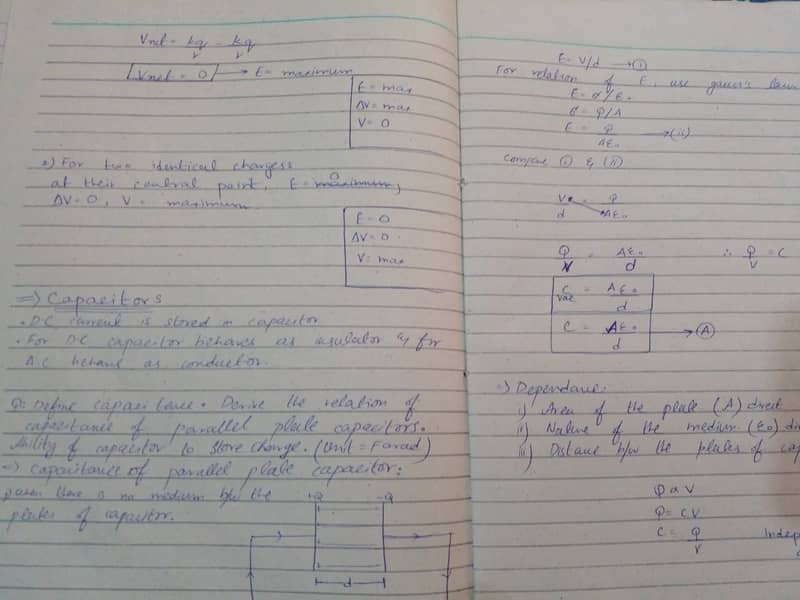 Vnet = kq/r - kq/r
Vnet = 0 → E = maximum
E = max
ΔV = max
V = 0
2) For two identical chargess
at their central point, E = 0 maximum,
ΔV = 0, V = maximum.
E = 0
ΔV = 0.
V = max
=> Capacitors
• D.C current is stored in capacitor
• For D.C capacitor behaves as insulator & for
A.C behave as conductor.
Q: Define capacitance. Derive the relation of
capacitance of parallel plate capacitors.
Ability of capacitor to store charge. (Unit = Farad)
=> Capacitance of parallel plate capacitor:
when there is no medium b/w the
plates of capacitor.
+Q -Q
d
E = V/d → (i)
For relation of E, use gauss's law
E = σ/ε₀
σ = Q/A
E = Q/Aε₀ → (ii)
Compare (i) & (ii)
V/d = Q/Aε₀
Q/V = Aε₀/d ∴ Q/V = C
C vac = Aε₀/d
C = Aε₀/d → (A)
Dependane:
i) Area of the plate (A) direct
ii) Nature of the medium (ε₀) di
iii) Distance b/w the plates of cap
Q α V
Q = CV
C = Q/V Indep